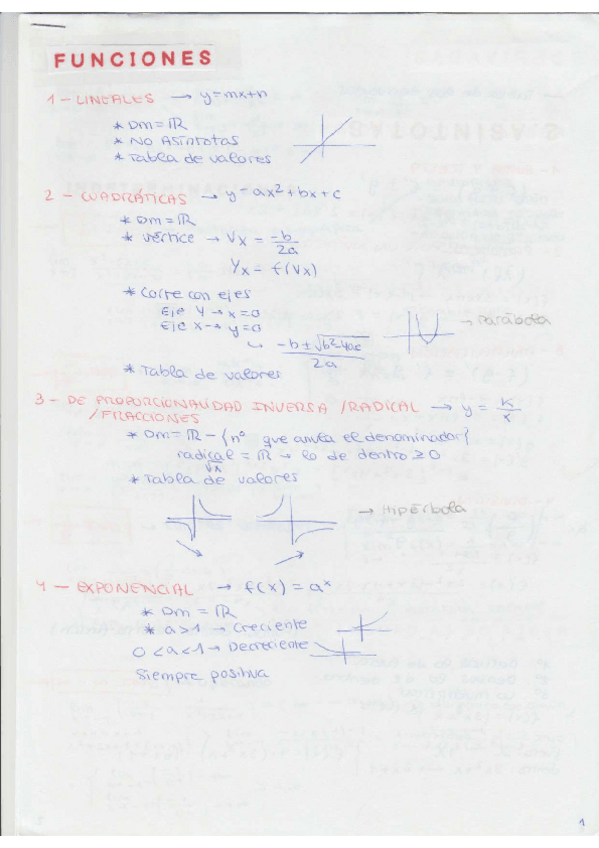 FUNCIONES
1 - LINEALES → y=mx+n
* Dm = ℝ
* NO ASíntotas
* Tabla de valores
2 - CUADRÁTICAS → y = ax² + bx + c
* Dm = ℝ
* vértice → Vx = -b/2a
Yx = f(Vx)
* Corte con ejes
Eje Y → x=0
Eje X → y=0
↳ -b ± √b²-4ac / 2a
→ Parábola
* Tabla de valores
3 - DE PROPORCIONALIDAD INVERSA / RADICAL → y = K/x
/FRACCIONES
* Dm = ℝ - {nº que anula el denominador}
radical = ℝ → lo de dentro ≥ 0
√x
* Tabla de valores
→ Hipérbola
4 - EXPONENCIAL → f(x) = aˣ
* Dm = ℝ
* a>1 → Creciente
0<a<1 → Decreciente
Siempre positiva
1